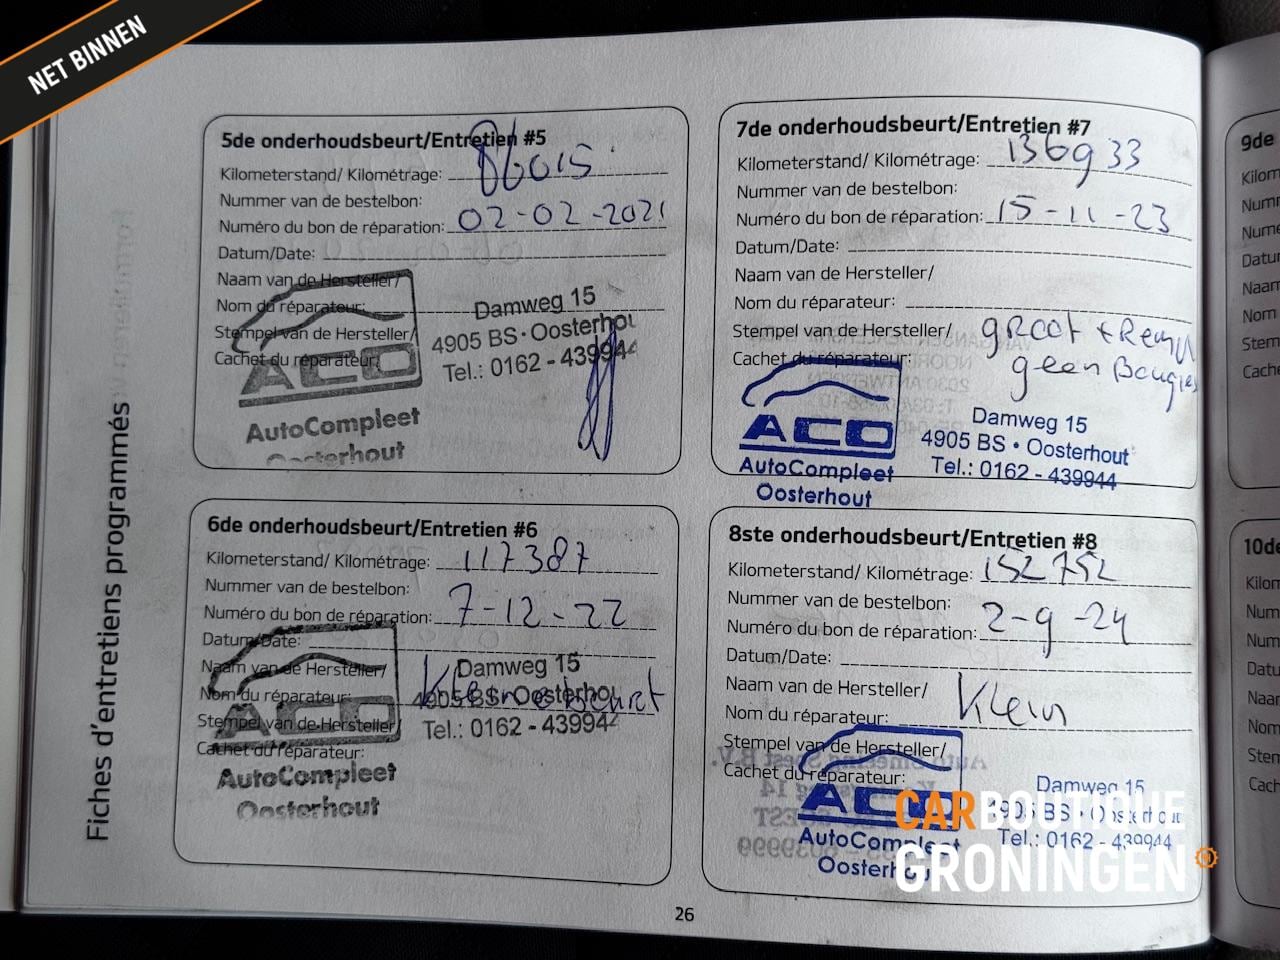 NET BINNEN
Fiches d'entretiens programmés
5de onderhoudsbeurt/Entretien #5
Kilometerstand/ Kilométrage: 86015
Nummer van de bestelbon:
Numéro du bon de réparation: 02-02-2021
Datum/Date:
Naam van de Hersteller/
Nom du réparateur:
Stempel van de Hersteller/
Cachet du réparateur:
ACO
AutoCompleet
Oosterhout
Damweg 15
4905 BS · Oosterhou
Tel.: 0162 - 439944
6de onderhoudsbeurt/Entretien #6
Kilometerstand/ Kilométrage: 117387
Nummer van de bestelbon:
Numéro du bon de réparation: 7-12-22
Datum/Date:
Naam van de Hersteller/
Nom du réparateur:
Stempel van de Hersteller/
Cachet du réparateur:
Kleine beurt
ACO
AutoCompleet
Oosterhout
Damweg 15
4905 BS · Oosterhou
Tel.: 0162 - 439944
7de onderhoudsbeurt/Entretien #7
Kilometerstand/ Kilométrage: 136933
Nummer van de bestelbon:
Numéro du bon de réparation: 15-11-23
Datum/Date:
Naam van de Hersteller/
Nom du réparateur:
Stempel van de Hersteller/
Cachet du réparateur:
groot +
geen Bougies
ACO
AutoCompleet
Oosterhout
Damweg 15
4905 BS · Oosterhout
Tel.: 0162 - 439944
8ste onderhoudsbeurt/Entretien #8
Kilometerstand/ Kilométrage: 152752
Nummer van de bestelbon:
Numéro du bon de réparation: 2-9-24
Datum/Date:
Naam van de Hersteller/
Nom du réparateur: Klein
Stempel van de Hersteller/
Cachet du réparateur:
ACO
AutoCompleet
Oosterhou
Damweg 15
4905 BS · Oosterhout
Tel.: 0162 - 439944
26
9de
10de
CARBOUTIQUE
GRONINGEN